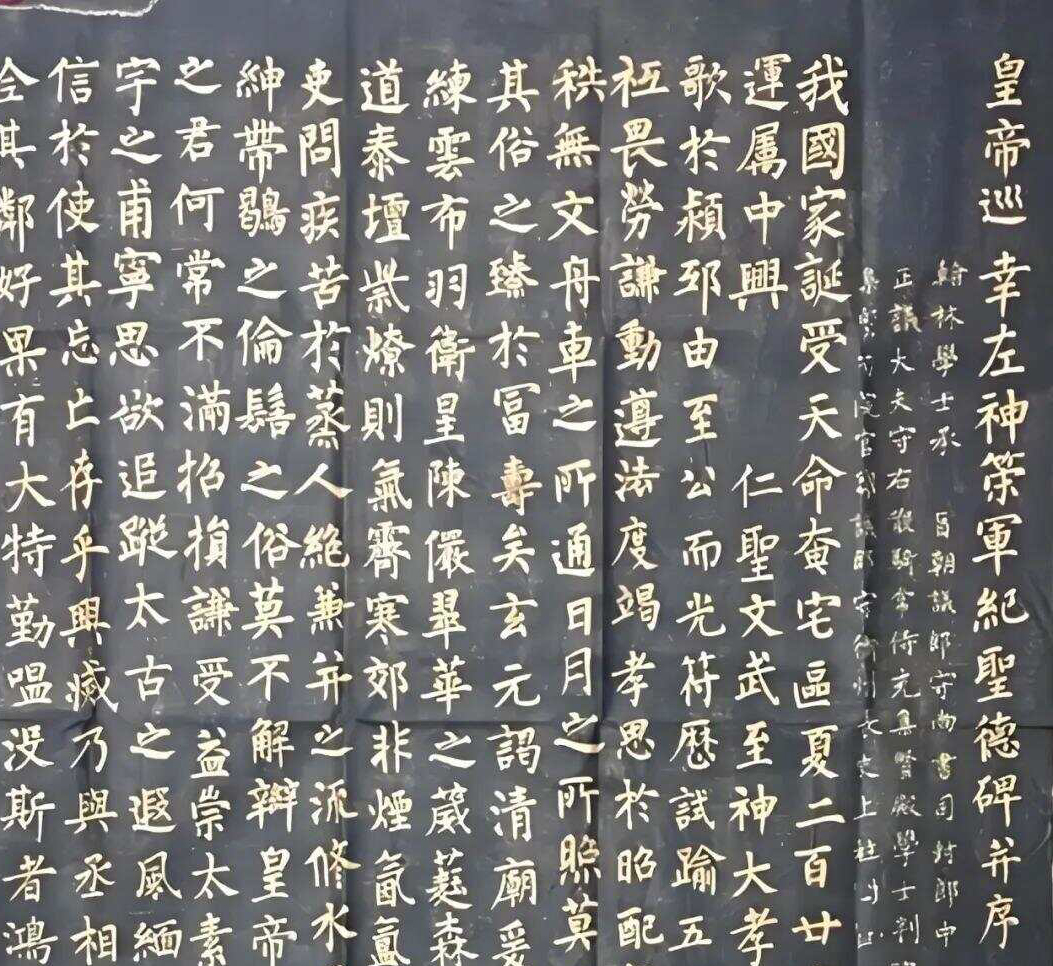 皇帝巡幸左神策軍紀聖德碑并序
翰林學士承 旨朝議郎守尚書司封郎中
正議大夫守右散騎常侍充集賢殿學士判
集賢 院官 議郎守 州長史上柱
我國家誕受天命奄宅區夏二百廿
運屬中興 仁聖文武至神大孝
歌於潁邸由至公而光符歷試踰五
祗畏勞謙動遵法度竭孝思於昭配
秩無文舟車之所通日月之所照莫
其俗之臻於冨壽矣玄元謁清廟爰
練雲布羽衛星陳儼翠華之葳蕤森
道泰壇祡燎則氣霽寒郊非煙氤氳
吏問疾苦於蒸人絕兼并之流修水
紳帶鶡之倫髻之俗莫不解辮皇帝
之君何常不滿招損謙受益崇太素
宇之甫寧思欲追蹤太古之遐風緬
信於使其忘亡存乎興滅乃與丞相
今其鄰好果有大特勤嗢没斯者鴻